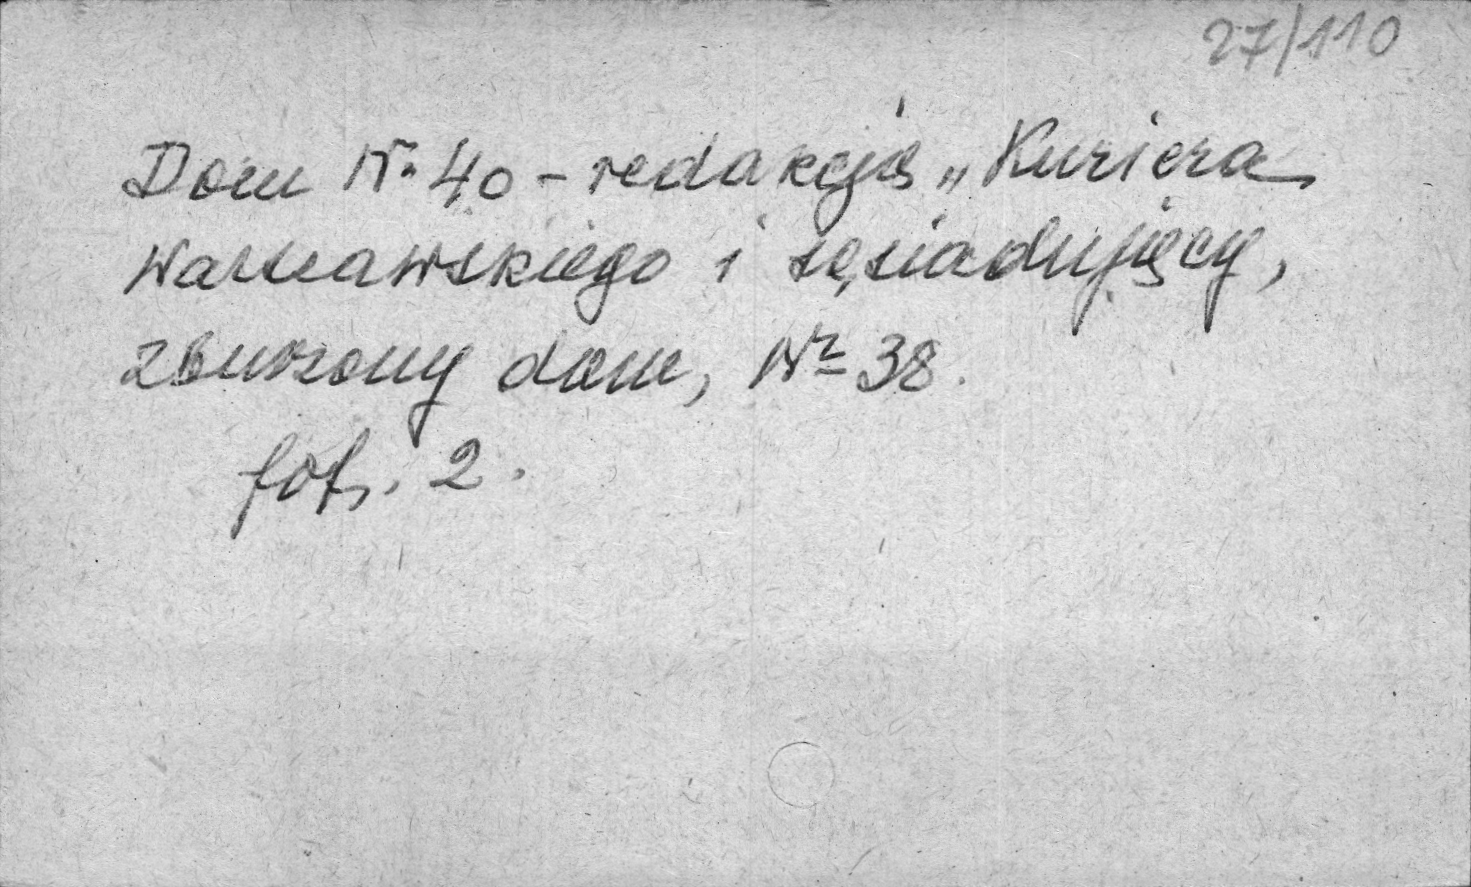 27/110
Dom Nr 40 - redakcja „Kuriera
Warszawskiego i sąsiadujący,
zburzony dom, Nr 38.
fot. 2.